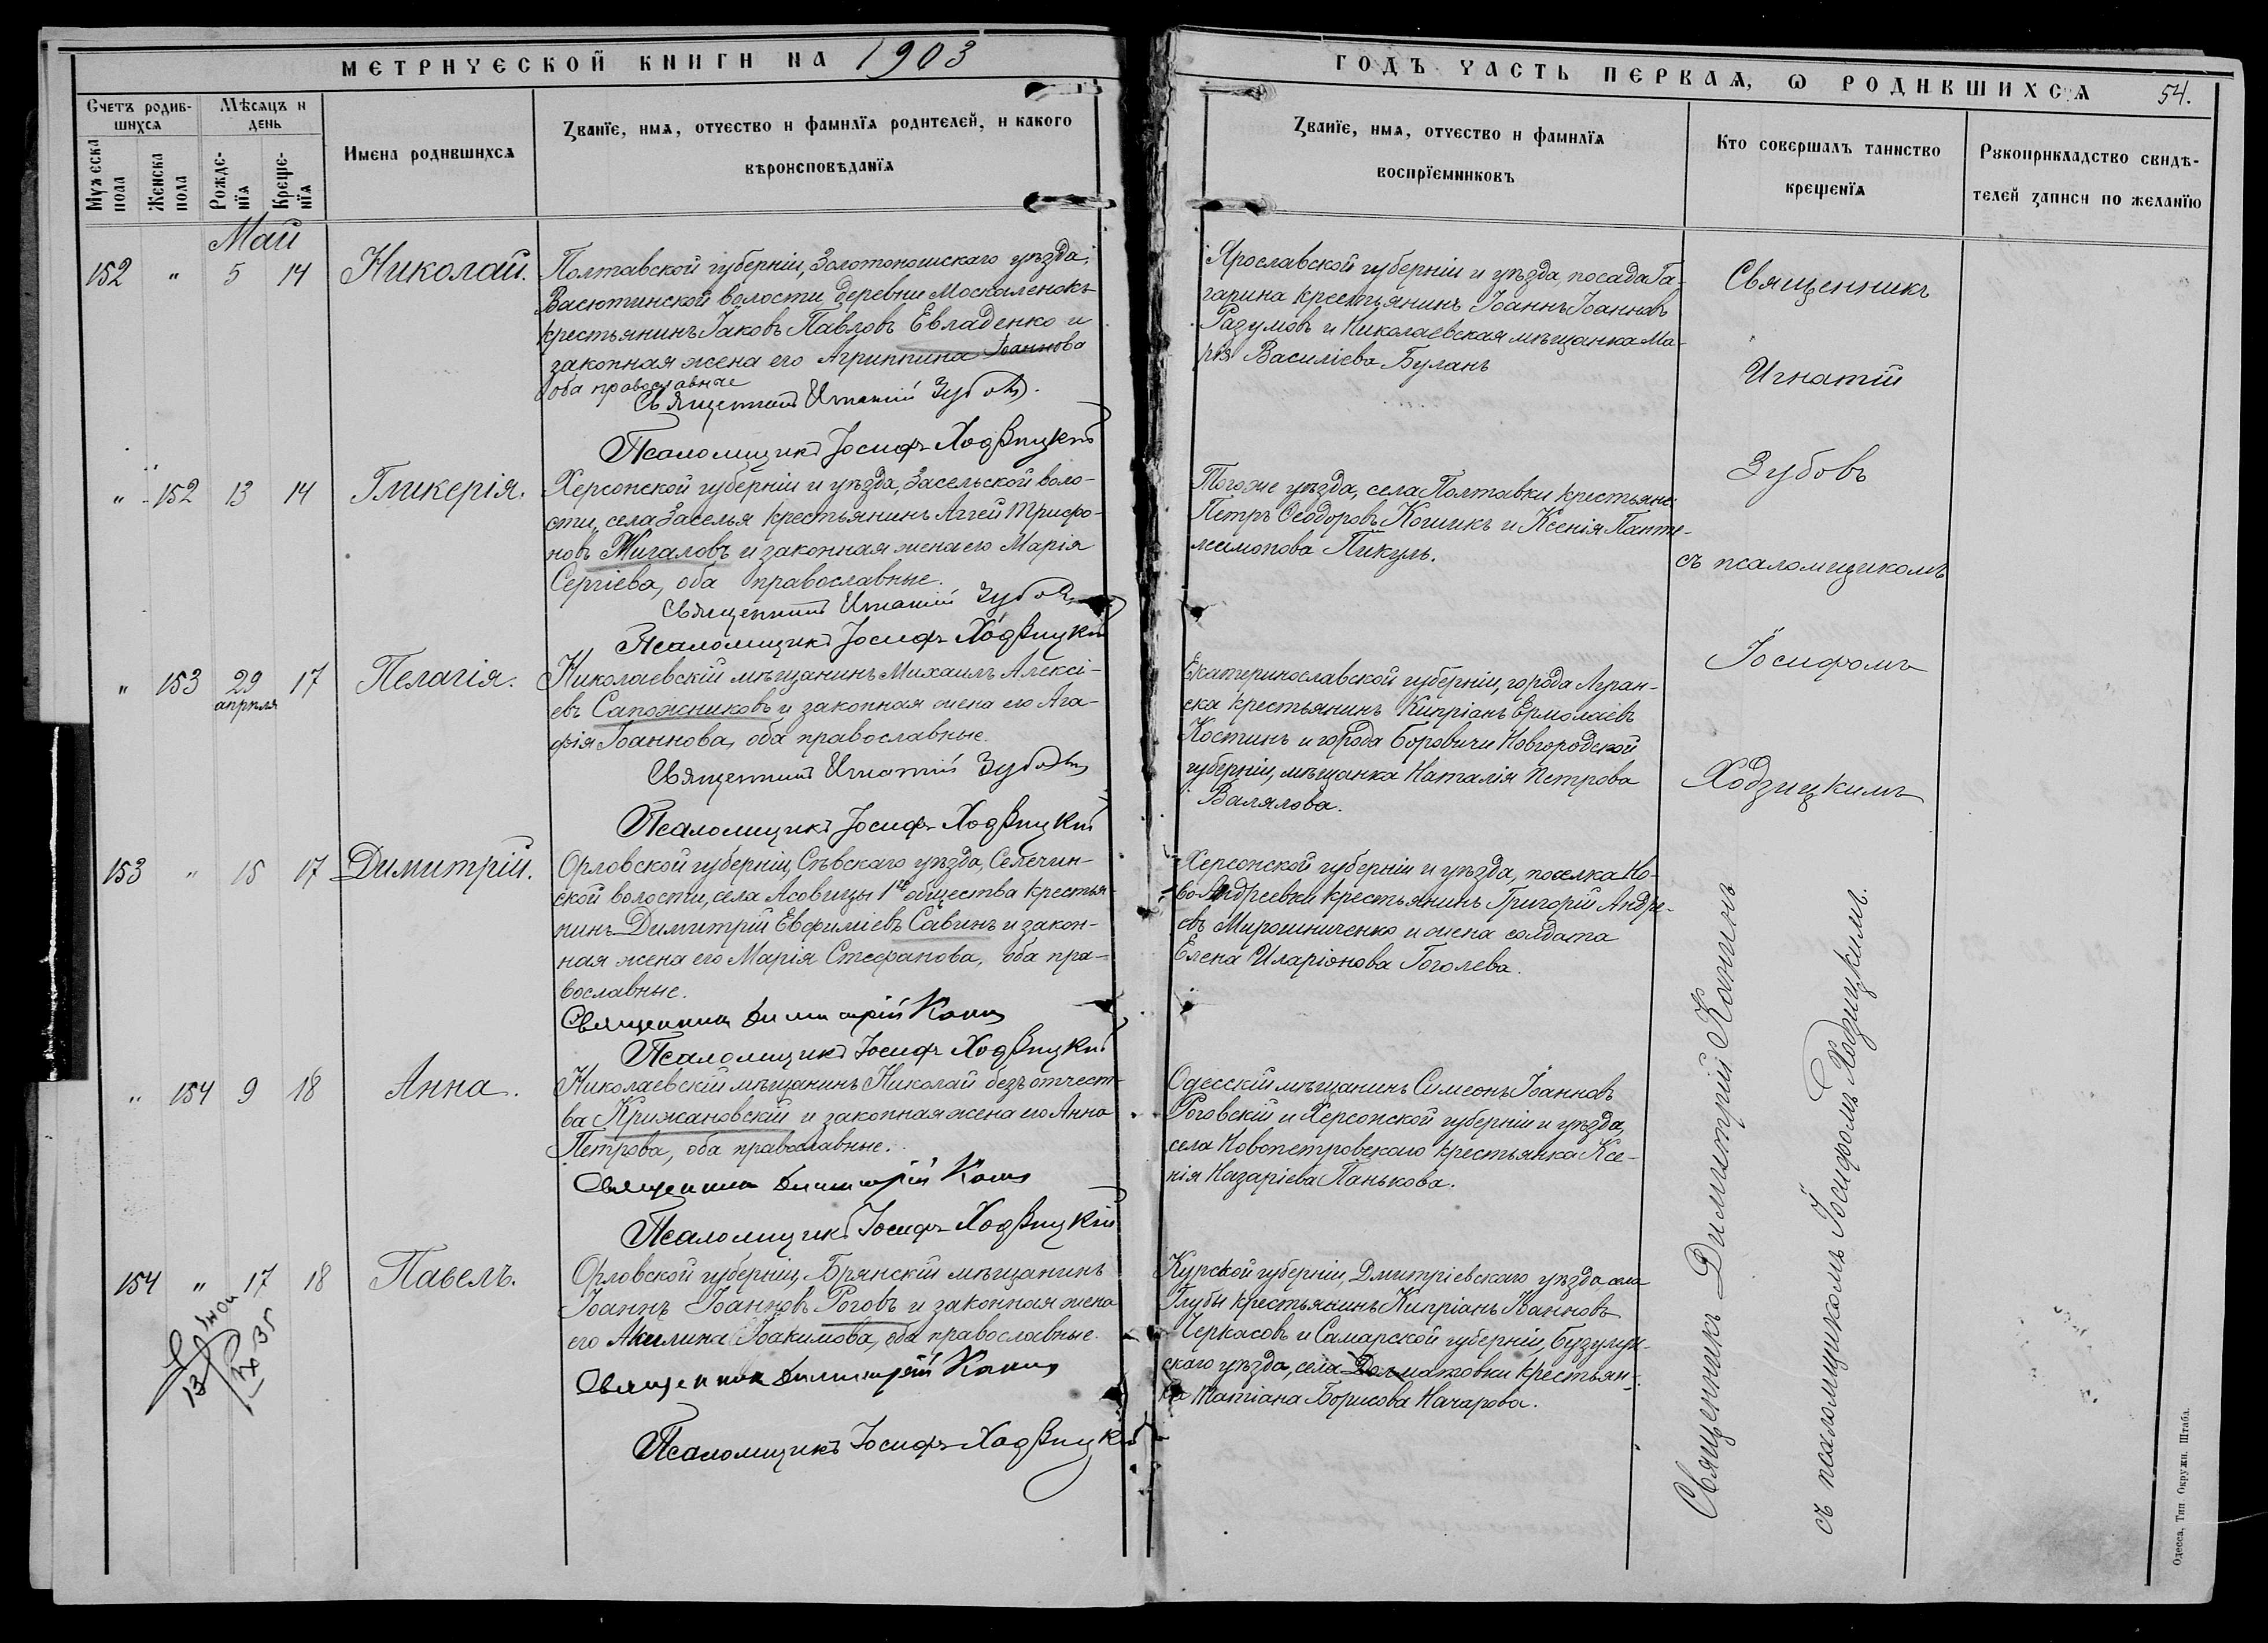 МЕТРИЧЕСКОЙ КНИГИ НА 1903
ГОДЪ ЧАСТЬ ПЕРВАЯ, Ѡ РОДИВШИХСЯ
54.
Счетъ родив-
шихся
Мѣсяцъ и
день
Мужеска
пола
Женска
пола
Рожде-
нїя
Креще-
нїя
Имена родившихся
Званїе, имя, отчество и фамилїя родителей, и какого
вѣроисповѣданїя
Званїе, имя, отчество и фамилїя
воспрїемниковъ
Кто совершалъ таинство
крещенїя
Рукоприкладство свидѣ-
телей записи по желанїю
Май
152 " 5 14 Николай.
Полтавской губерніи, Золотоношскаго уѣзда,
Васютинской волости, деревни Москаленокъ
крестьянинъ Іаковъ Павловъ Евладенко и
законная жена его Агриппина Іоаннова
оба православные
Священникъ Игнатій Зубовъ.
Псаломщикъ Іосифъ Ходзицкій
Ярославской губерніи и уѣзда, посада Га-
гарина крестьянинъ Іоаннъ Іоанновъ
Разумовъ и Николаевская мѣщанка Ма-
рія Василіева Буланъ
" 152 13 14 Гликерія.
Херсонской губерніи и уѣзда, Засельской воло-
сти, села Заселья крестьянинъ Аггей Трифо-
новъ Жигаловъ и законная жена его Марія
Сергіева, оба православные.
Священникъ Игнатій Зубовъ
Псаломщикъ Іосифъ Ходзицкій
Тогоже уѣзда, села Полтавки крестьяне:
Петръ Ѳеодоровъ Кошикъ и Ксенія Панте-
леимонова Пикуль.
" 153 29 17 Пелагія.
апрѣля
Николаевскій мѣщанинъ Михаилъ Алексі-
евъ Сапожниковъ и законная жена его Ага-
фія Іоаннова, оба православные.
Священникъ Игнатій Зубовъ
Псаломщикъ Іосифъ Ходзицкій
Екатеринославской губерніи, города Луган-
ска крестьянинъ Кипріанъ Ермолаевъ
Костинъ и города Боровичи Новгородской
губерніи, мѣщанка Наталія Петрова
Валялова.
153 " 15 17 Димитрій.
Орловской губерніи, Сѣвскаго уѣзда, Селечин-
ской волости, села Асовицы 1го общества крестья-
нинъ Димитрій Евфиміевъ Савинъ и закон-
ная жена его Марія Стефанова, оба пра-
вославные.
Священникъ Димитрій Канинъ
Псаломщикъ Іосифъ Ходзицкій
Херсонской губерніи и уѣзда, поселка Но-
во-Андреевки крестьянинъ Григорій Андре-
евъ Мирошниченко и жена солдата
Елена Иларіонова Гоголева.
" 154 9 18 Анна.
Николаевскій мѣщанинъ Николай безъ отчест-
ва Крижановскій и законная жена его Анна
Петрова, оба православные.
Священникъ Димитрій Канинъ
Псаломщикъ Іосифъ Ходзицкій
Одесскій мѣщанинъ Симеонъ Іоанновъ
Роговскій и Херсонской губерніи и уѣзда,
села Новопетровскаго крестьянка Ксе-
нія Назаріева Панькова.
154 " 17 18 Павелъ.
Орловской губерніи, Брянскій мѣщанинъ
Іоаннъ Іоанновъ Роговъ и законная жена
его Акилина Іоакимова, оба православные.
Священникъ Димитрій Канинъ
Псаломщикъ Іосифъ Ходзицкій
Курской губерніи, Дмитріевскаго уѣзда села
Глубы крестьянинъ Кипріанъ Іоанновъ
Черкасовъ и Самарской губерніи, Бузулук-
скаго уѣзда, села Долматовки крестьян-
ка Татіана Борисова Начарова.
Священникъ
Игнатій
Зубовъ
съ псаломщикомъ
Іосифомъ
Ходзицкимъ
Священникъ Димитрій Канинъ
съ псаломщикомъ Іосифомъ Ходзицкимъ.
Одесса, Тип. Окружн. Штаба.